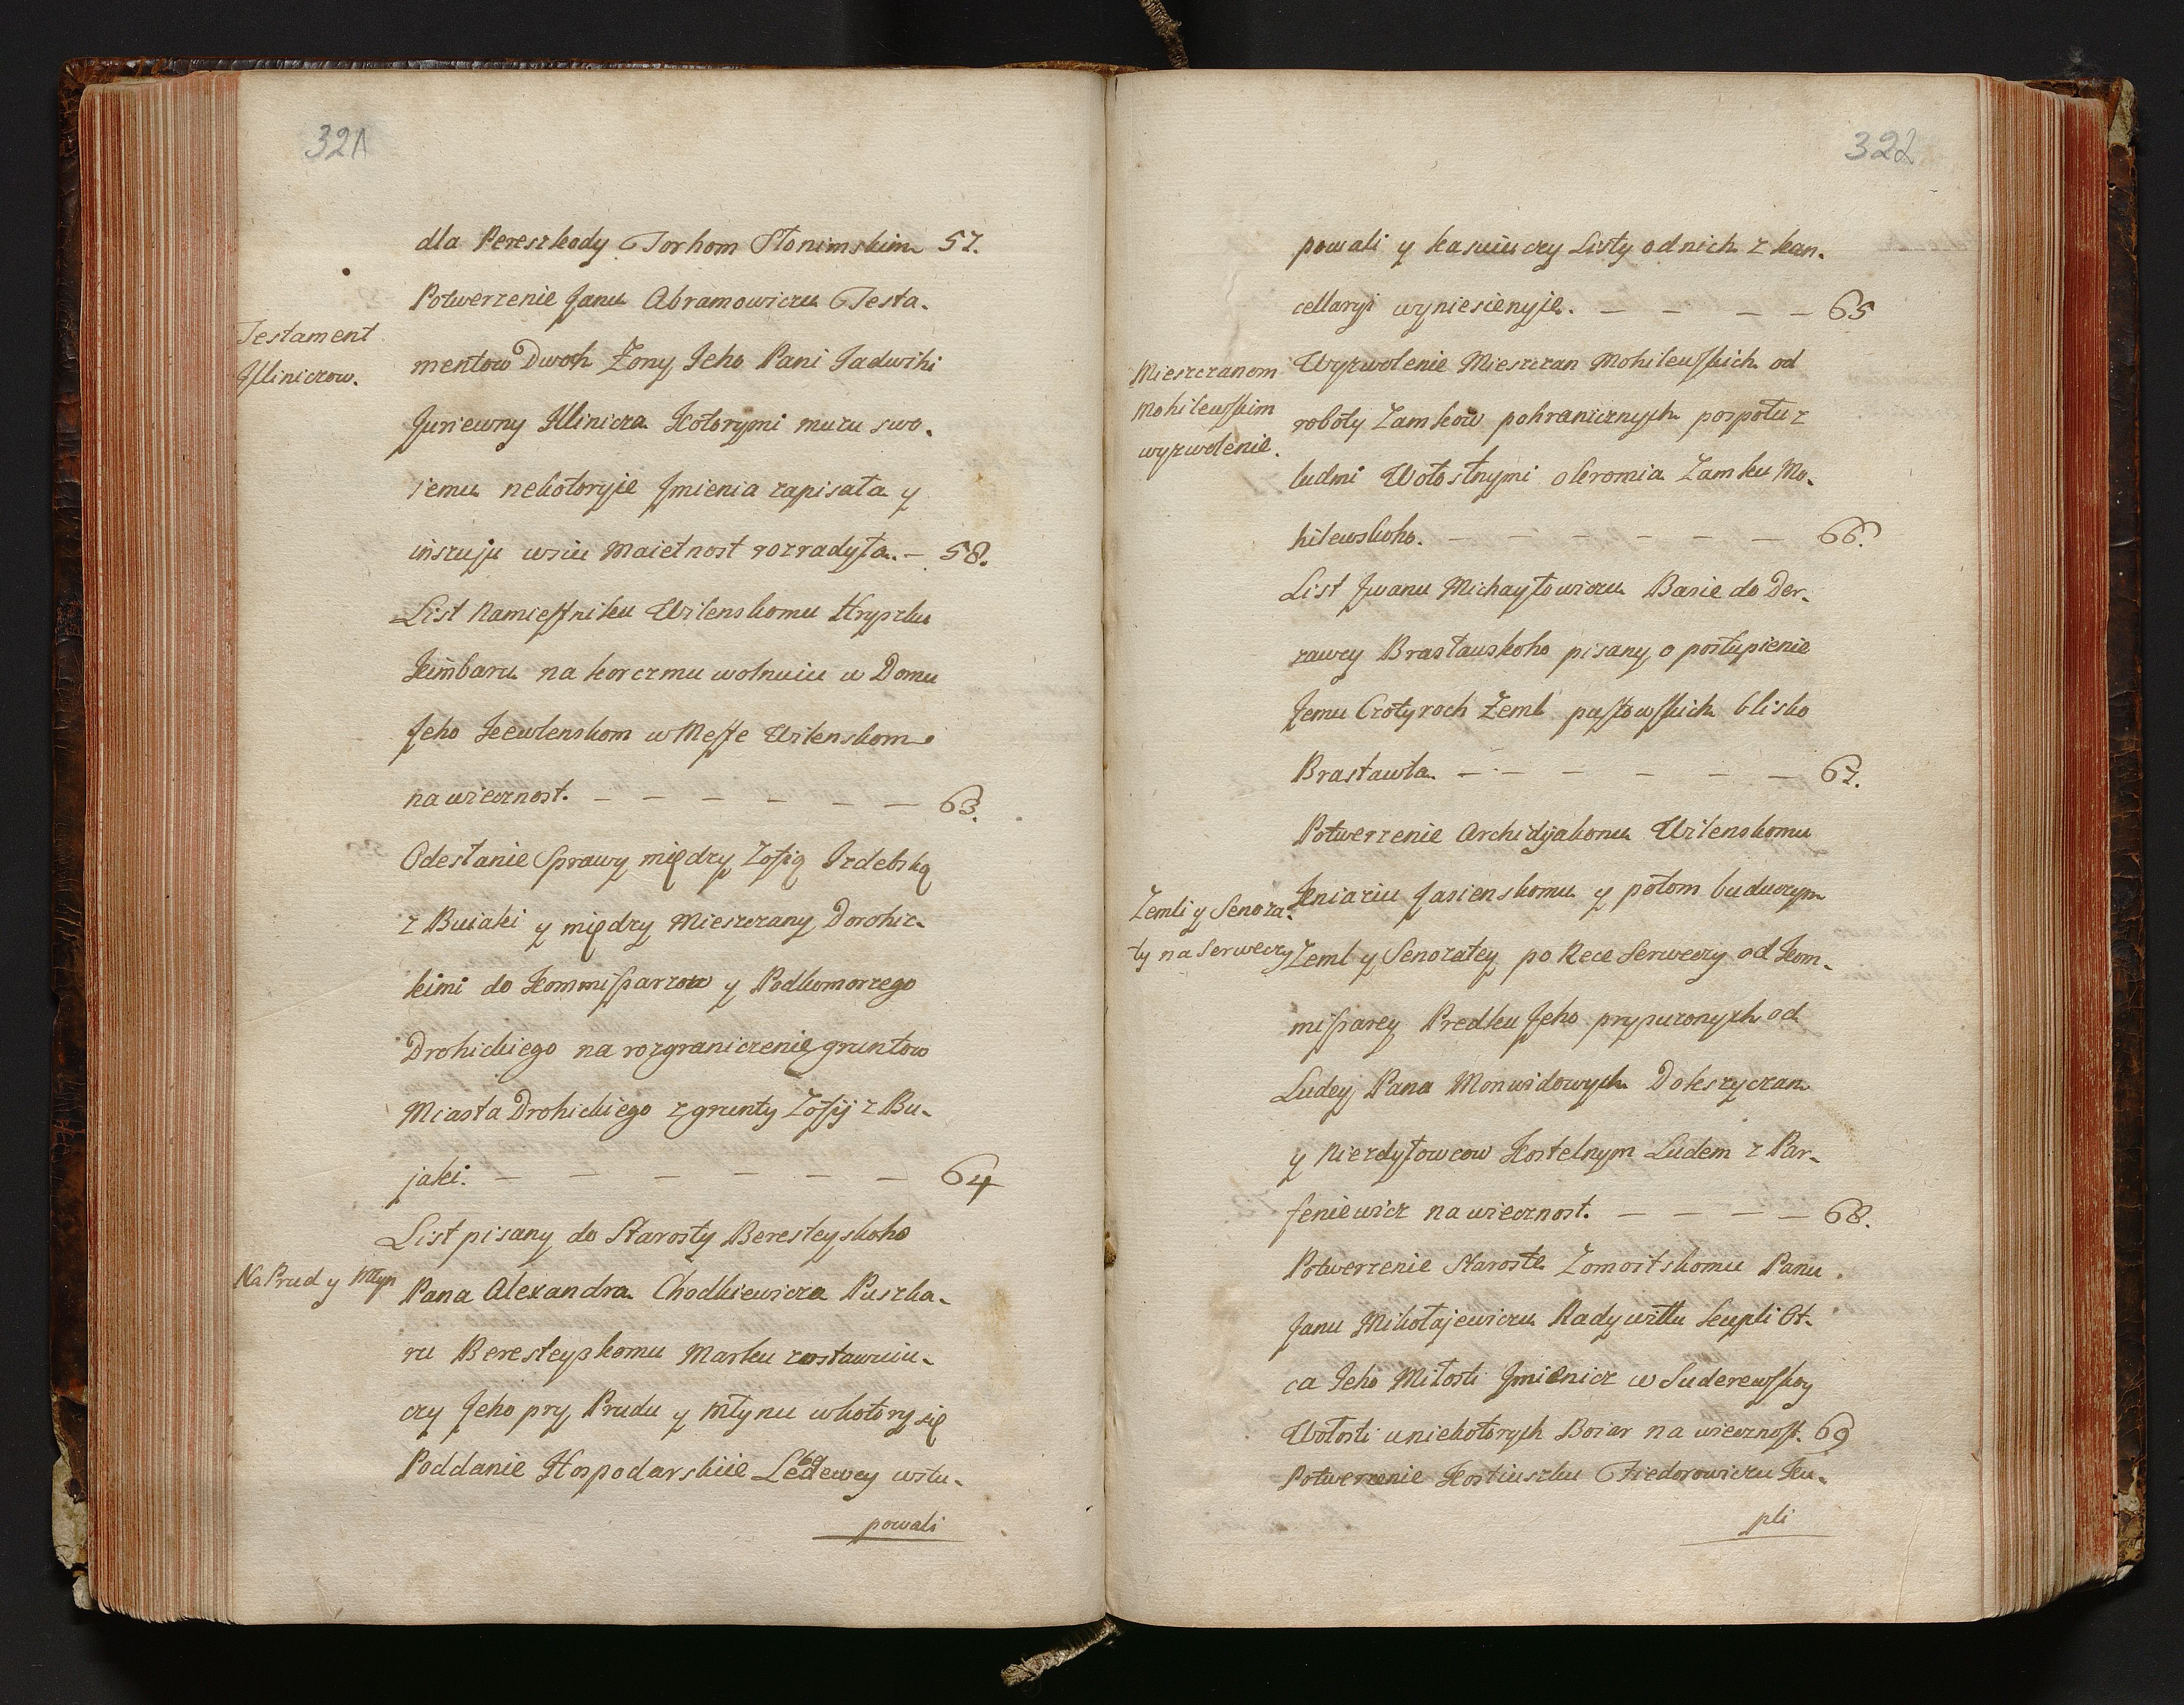 321
dla Pereszkody Torhom Słonimskim 57.
Potwerzenie Janu Abramowiczu Testa-
Testament
mentow Dwoch Żony Jeho Pani Jadwihi
Illiniczow.
Juriewny Illinicza Kotorymi mużu swo-
iemu nekotoryie Jmienia zapisała y
inszuju wsiu Maietnost rozradyła. — 58.
List Namiestniku Wilenskomu Hryszku
Kimbaru na korczmu wolnuiu w Domu
Jeho Kewlenskom w Meste Wilenskom
na wiecznost. — — — — — — 63.
Odesłanie Sprawy między Zofią Izdebską
z Buiaki y między Mieszczany Dorohic-
kimi do Kommissarzow y Podkomorzego
Drohickiego na rozgraniczenie gruntow
Miasta Drohickiego z grunty Zofij z Bu-
jaki. — — — — — — 64
List pisany do Starosty Beresteyskoho
Na Prud y Młyn
Pana Alexandra Chodkiewicza Puszka-
ru Beresteyskomu Marku zostawuiu-
czy Jeho pry Prudu y Młynu w kotory się
Poddanie Hospodarskiie Lebedewcy wstu-
powali
322
powali y kasuiuczy Listy od nich z kan-
cellaryi wyniesienyie. — — — — 65
Mieszczanom
Mohilewskim
wyzwolenie.
Wyzwolenie Mieszczan Mohilewskich od
roboty Zamkow pohranicznych pospołu z
ludmi Wołostnymi okromia Zamku Mo-
hilewskoho. — — — — — — 66.
List Jwanu Michayłowiczu Basie do Der-
zawcy Brasławskoho pisany o postupienie
Jemu Czotyroch Zeml pustowskich blisko
Brasławla. — — — — — — 67.
Potwerzenie Archidyakonu Wilenskomu
Zemli y Senoża-
ty na Serweczy
Kniaziu Jasienskomu y potom buduczym
Zeml y Senozatey po Rece Serweczy od Kom-
missarey Predku Jeho prypuzonych od
Ludey Pana Monwidowych Dokszyczan
y Niezdyłowcow Kostelnym Ludem z Par-
feniewicz na wiecznost. — — — — 68.
Potwerzenie Staroste Zomoitskomu Panu
Janu Mikołajewiczu Radywiłłu kupli Ot-
ca Jeho Miłosti Jmienicz w Suderewskoy
Wołosti u niekotorych Boiar na wiecznost. 69
Potwerzenie Kostiuszku Fiedorowiczu Ku-
pli